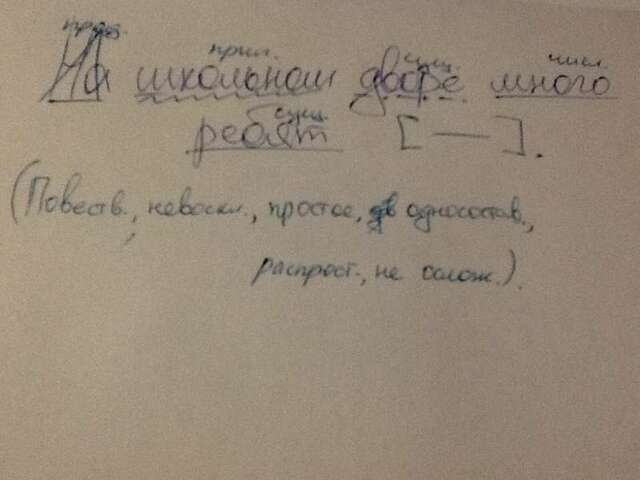 предл. прил. сущ. числ.
На школьном дворе много
сущ.
ребят [ — ].
(Повеств., невоскл., простое, односостав.,
распрост., не ослож.).